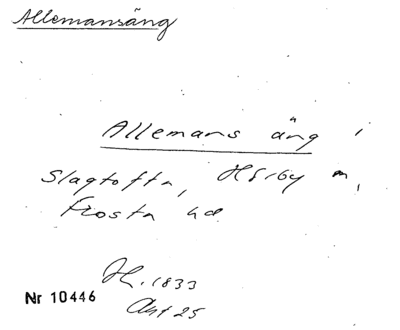 Allemansäng
Allemans äng i
Slagtofta, Hörby sn,
Frosta hd
H. 1833
Nr 10446
Akt 25